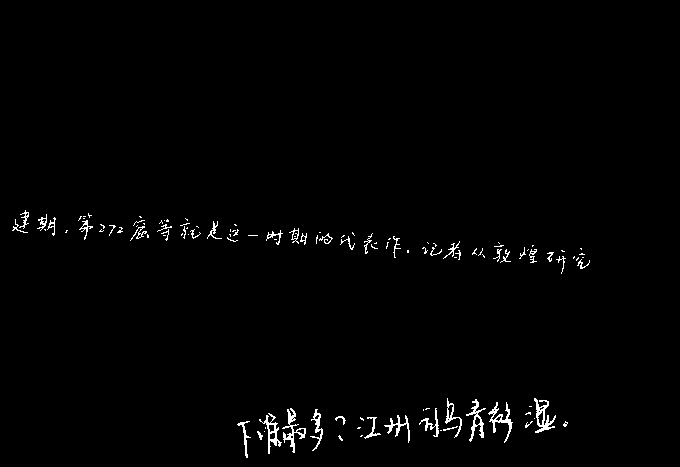 建期,第272窟等就是这一时期的代表作.记者从敦煌研究
下谁最多?江州司马青衫湿。